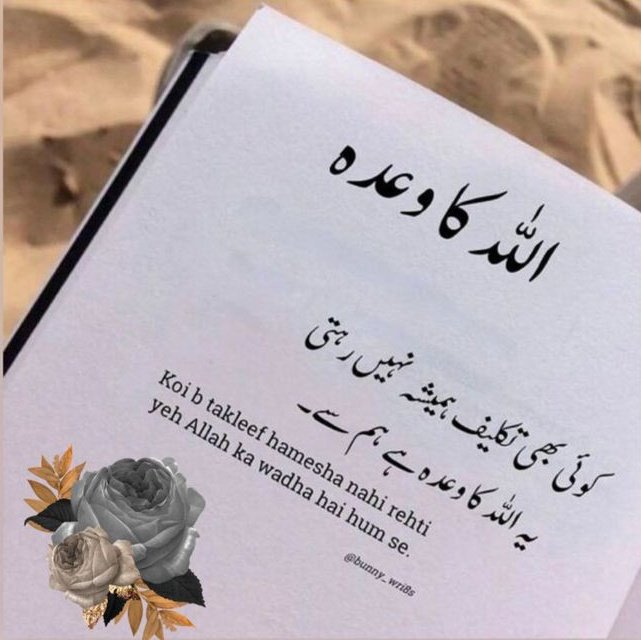 اللہ کا وعدہ
کوئی بھی تکلیف ہمیشہ نہیں رہتی
یہ اللہ کا وعدہ ہے ہم سے۔
Koi b takleef hamesha nahi rehti
yeh Allah ka wadha hai hum se.
@bunny_wri8s